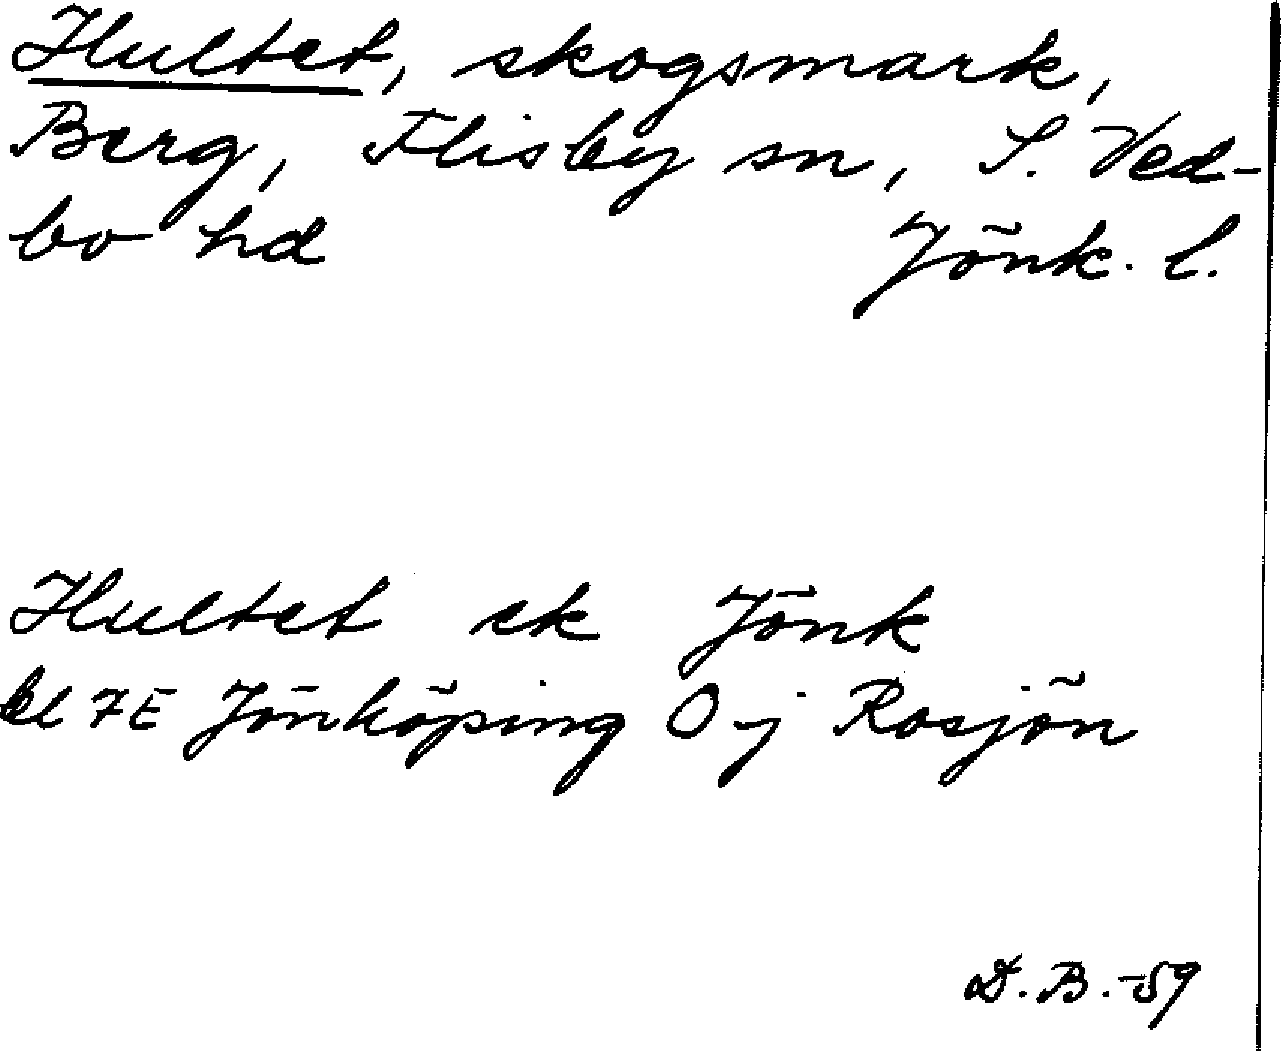 Hultet, skogsmark,
Berg, Flisby sn, S. Ved-
bo hd Jönk. l.
Hultet ek Jönk
bl 7E Jönköping Oj Rosjön
D.B.-59